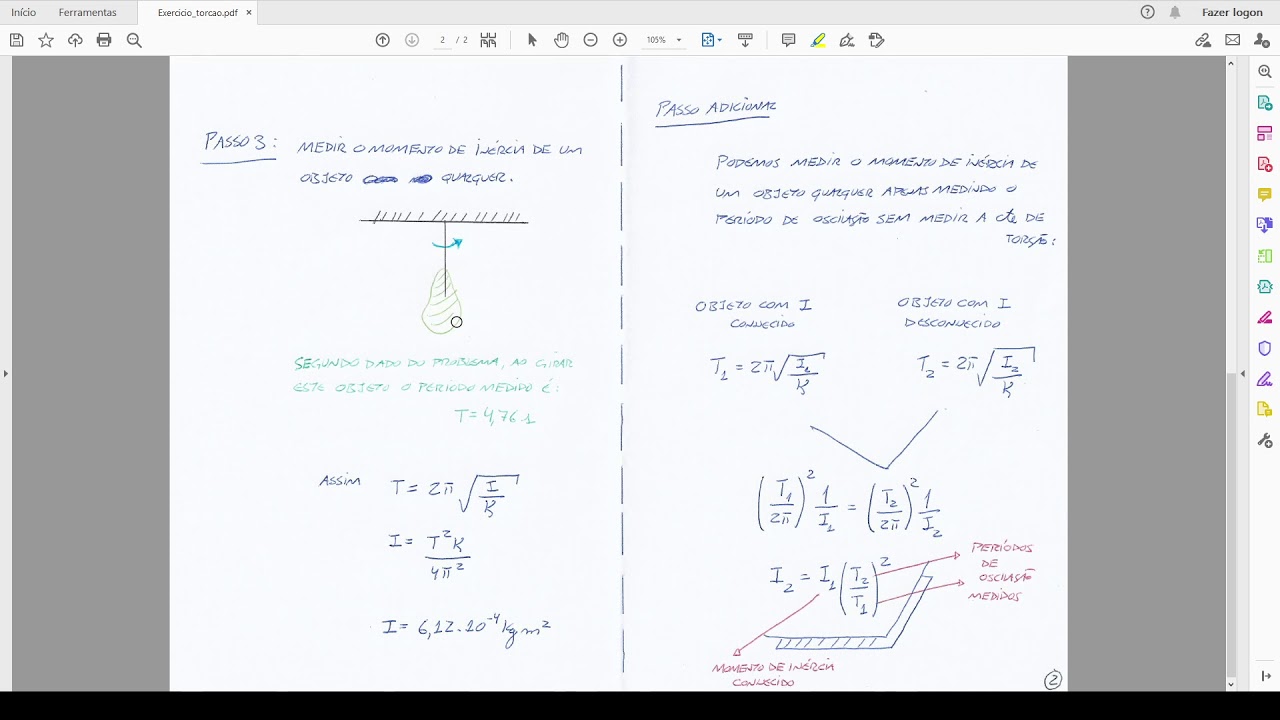 Início
Ferramentas
Exercicio_torcao.pdf ×
Fazer logon
2 / 2
105%
PASSO 3:
MEDIR O MOMENTO DE INÉRCIA DE UM
OBJETO QUALQUER.
SEGUNDO DADO DO PROBLEMA, AO GIRAR
ESTE OBJETO O PERÍODO MEDIDO É:
T = 4,76 s
ASSIM
T = 2π√(I/K)
I = T²K/4π²
I = 6,12.10⁻⁴ kg.m²
PASSO ADICIONAL
PODEMOS MEDIR O MOMENTO DE INÉRCIA DE
UM OBJETO QUALQUER APENAS MEDINDO O
PERÍODO DE OSCILAÇÃO SEM MEDIR A cte DE
TORÇÃO:
OBJETO COM I
CONHECIDO
T₁ = 2π√(I₁/K)
OBJETO COM I
DESCONHECIDO
T₂ = 2π√(I₂/K)
(T₁/2π)² 1/I₁ = (T₂/2π)² 1/I₂
I₂ = I₁(T₂/T₁)²
PERÍODOS
DE
OSCILAÇÃO
MEDIDOS
MOMENTO DE INÉRCIA
CONHECIDO
2